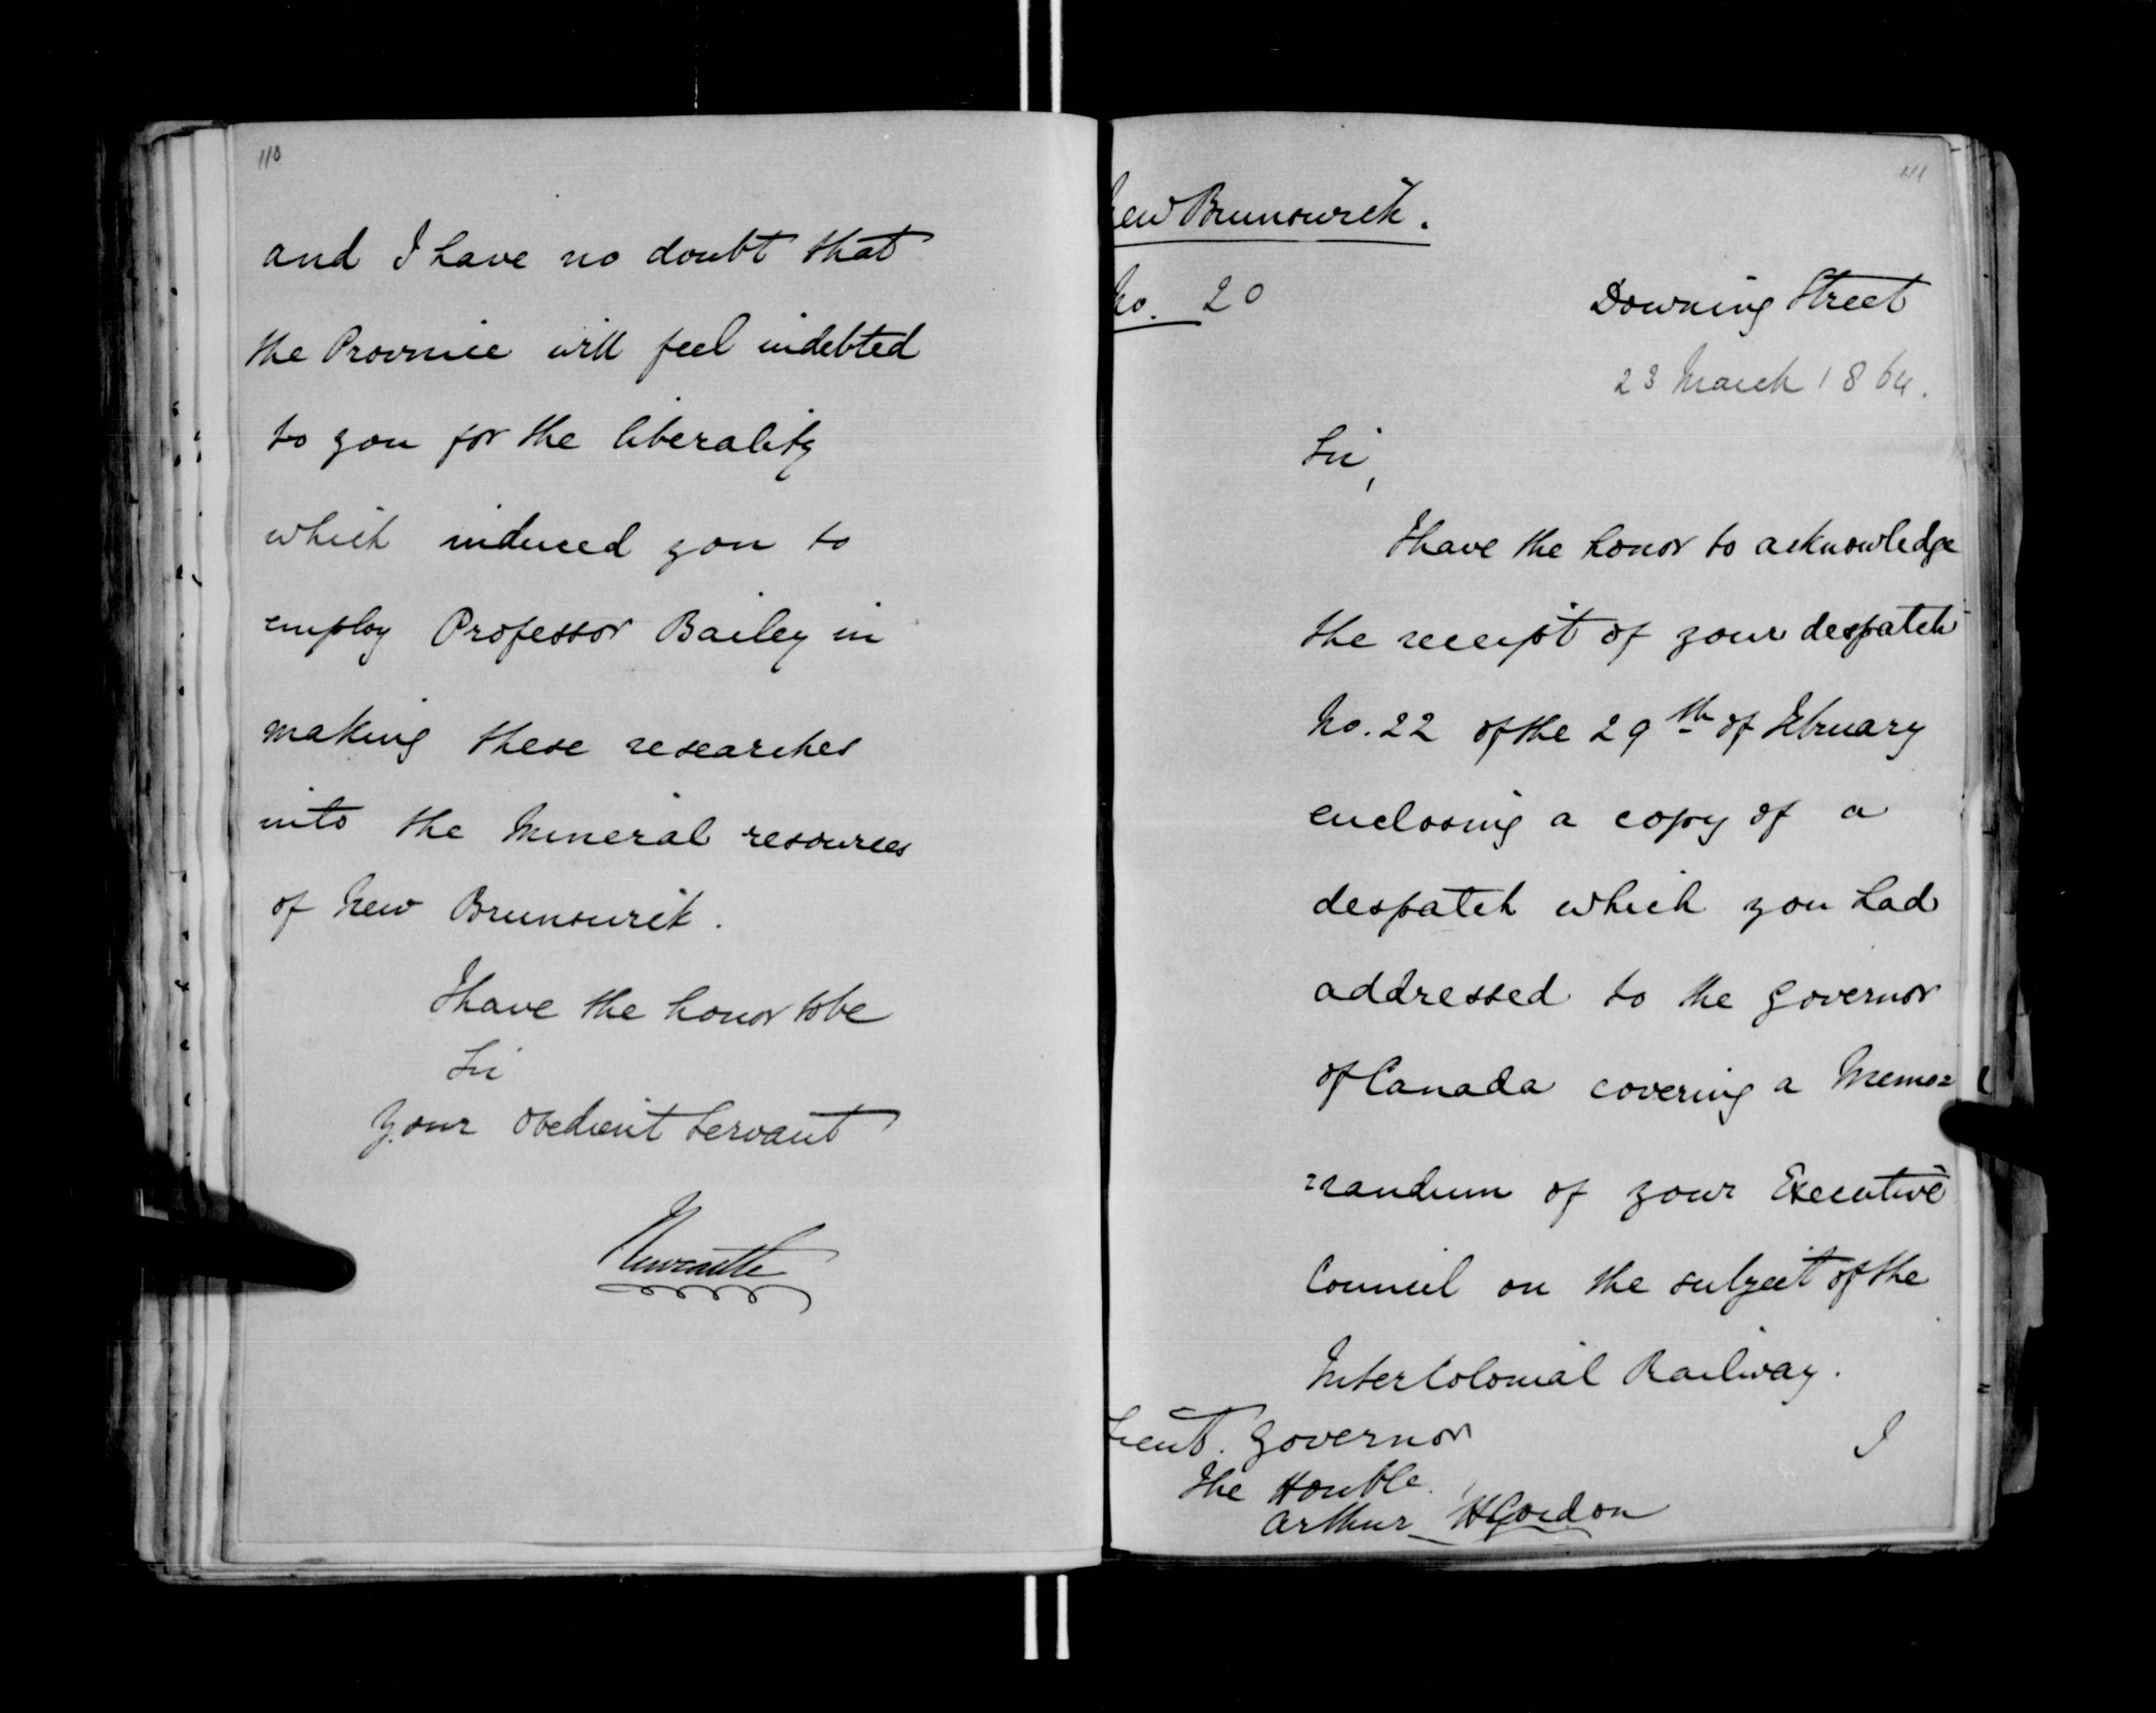 110
and I have no doubt that
the Province will feel indebted
to you for the liberality
which induced you to
employ Professor Bailey in
making these researches
into the Mineral resources
of New Brunswick.
I have the honor to be
Sir
Your obedient Servant
Newcastle
111
New Brunswick.
No. 20
Downing Street
23 March 1864.
Sir,
I have the honor to acknowledge
the receipt of your despatch
No. 22 of the 29th of February
enclosing a copy of a
despatch which you had
addressed to the Governor
of Canada covering a Memo=
=randum of your Executive
Council on the subject of the
InterColonial Railway.
I
Lieut. Governor
The Honble.
Arthur H Gordon